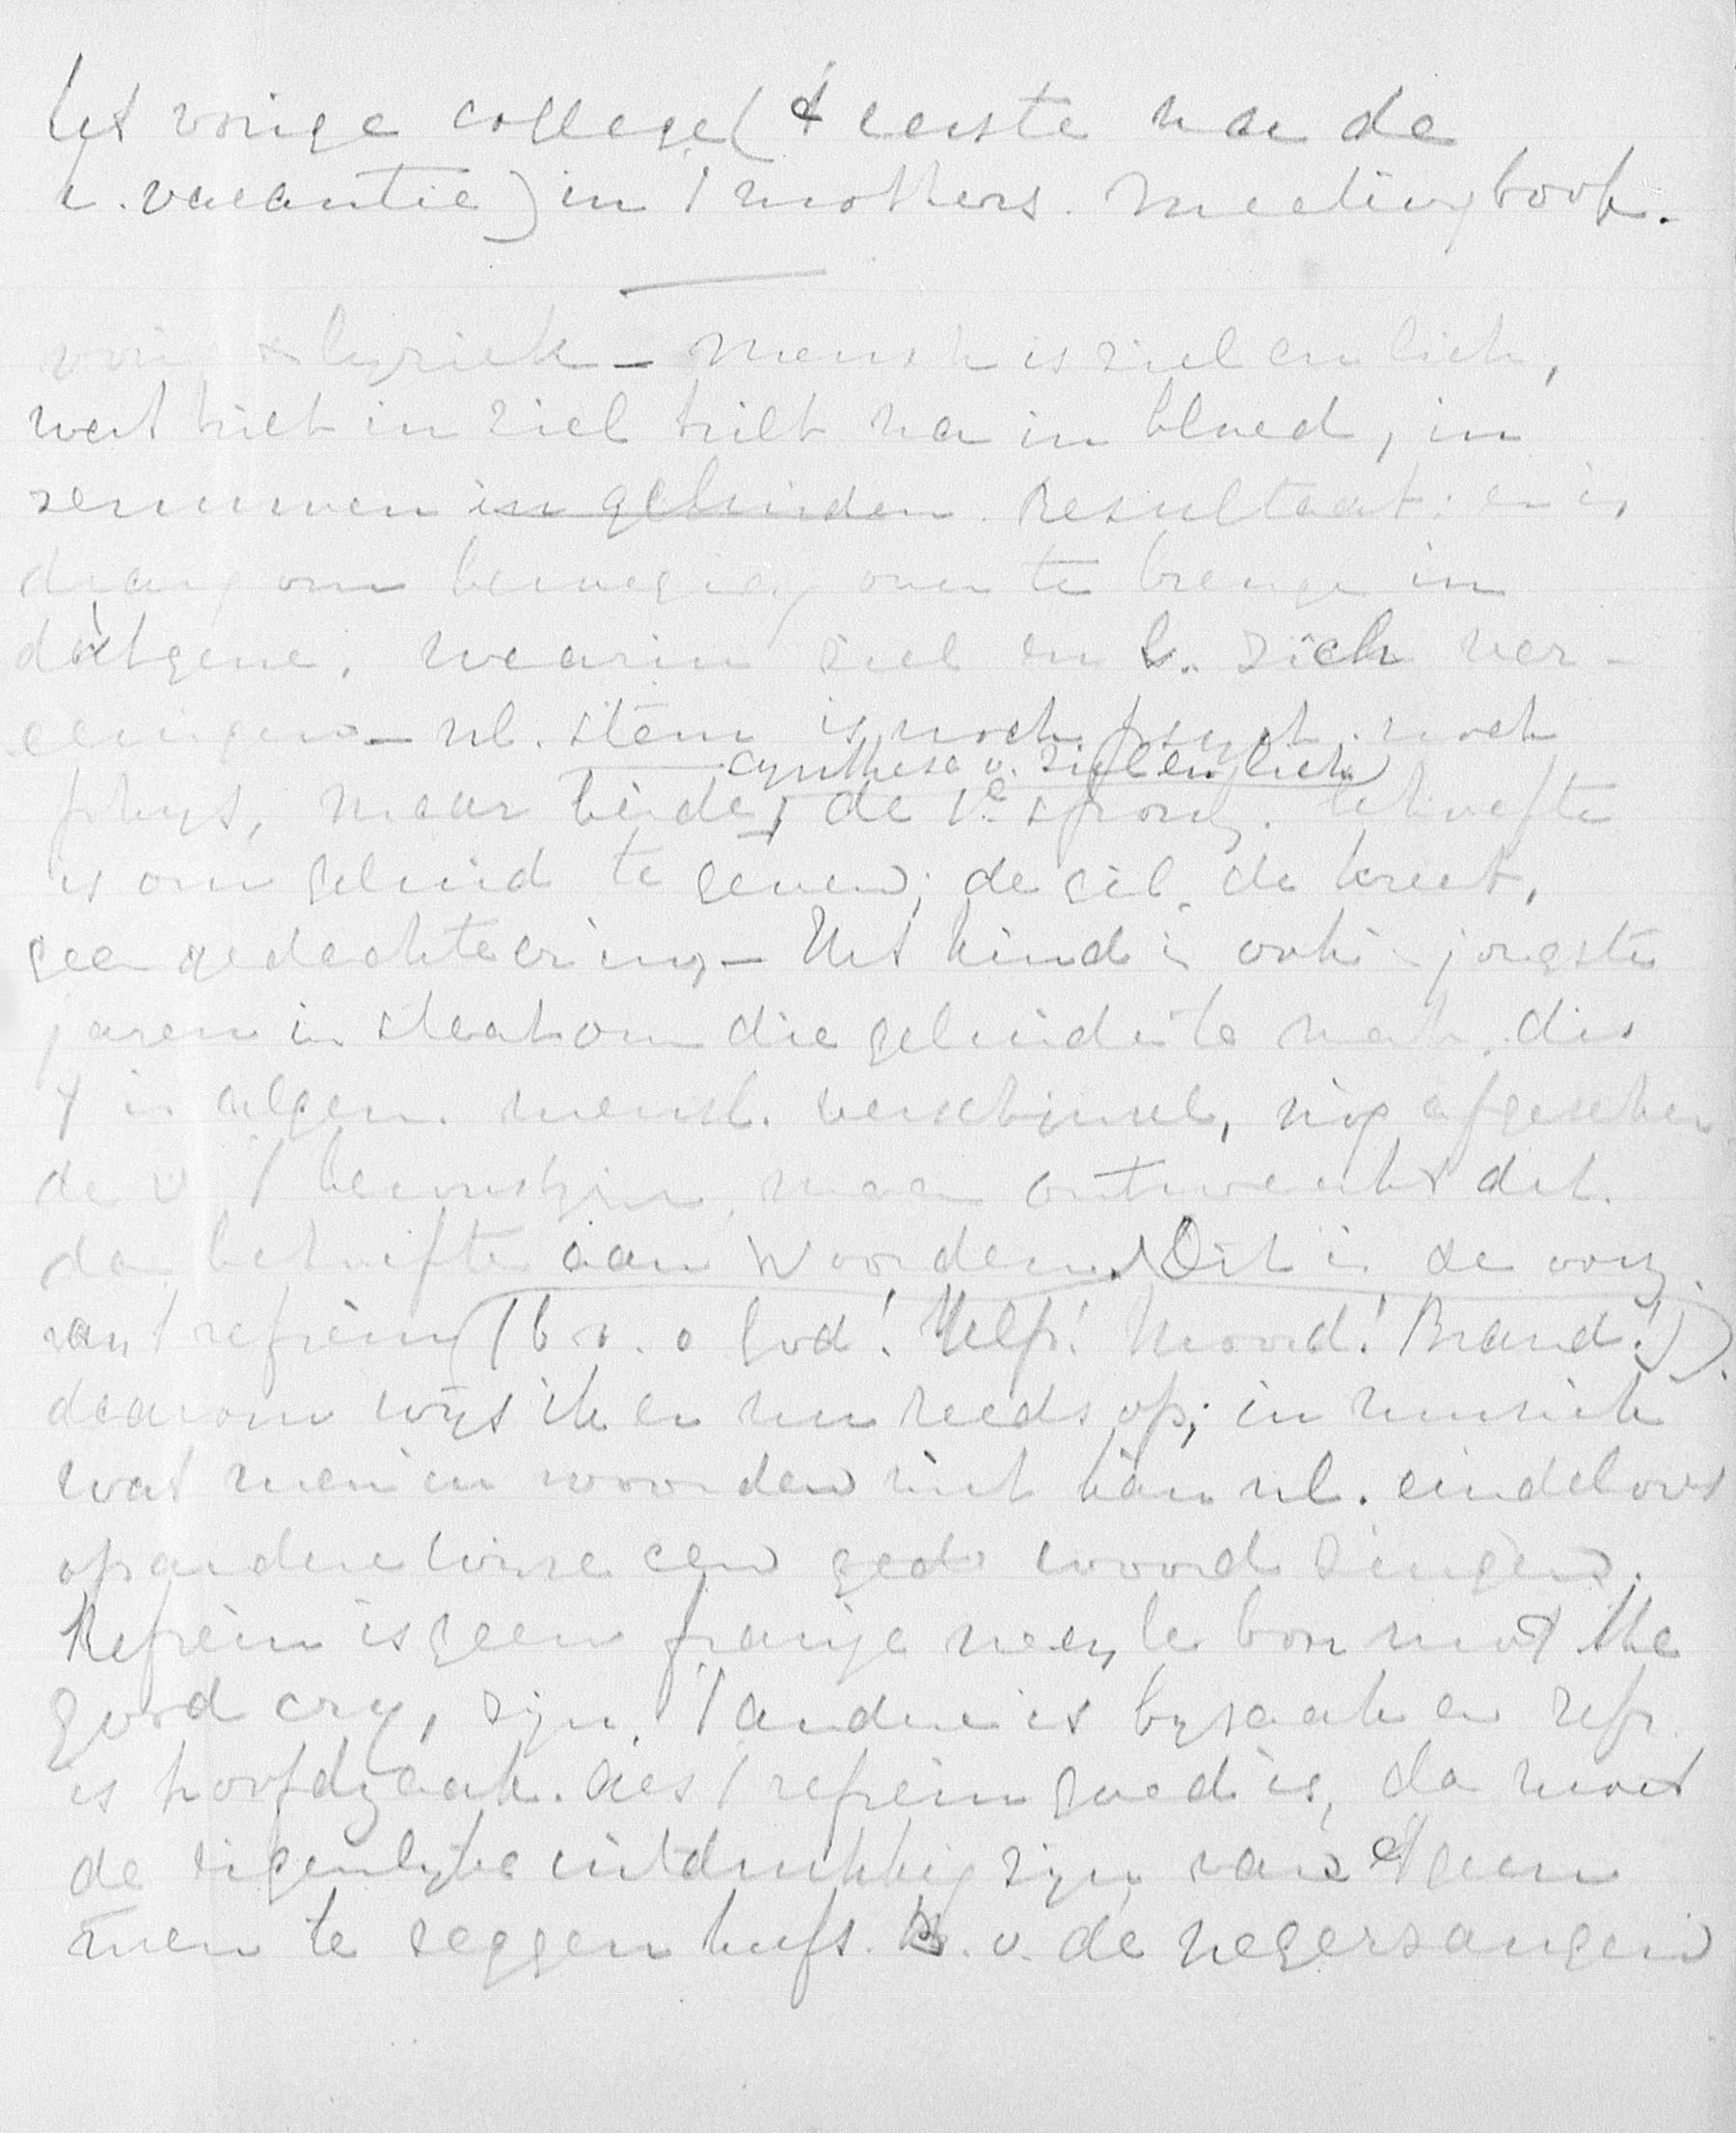 het vorige college (& eerste na de
k. vacantie) in 't mothers. meetingboek.
lyriek – mensch is ziel en lich,
wat trilt in ziel trilt na in bloed, in
zenuwen in geluiden. Resultaat: er is
drang om beweging over te brengen in
datgene, waarin ziel en l. zich ver-
eenigen – nl. stem is noch psych. noch
synthese v. ziel en lich.
phys, maar beide, de 1e sprong. behoefte
is om geluid te geven; de gil, de kreet,
geen gedachte erin – Het kind is ook in jongste
jaren in staat om die geluiden te mak. dus
't is algem. mensl. verschijnsel, nog afgeschei
de v 't bewustzijn, maar ontwaakt dit.
dan behoefte aan woorden. Dit is de oorz.
van 't refrein (b.v. o God! Help! Moord! Brand!).
daarom wijs ik er nu reeds op; in muziek
wat men in woorden niet kan nl. eindeloos
op andere wijze een ged. woord zingen.
Refrein is geen franje neen, le bon mot the
good cry, zijn. 't andere is bijzaak en refr.
is hoofdzaak. Als 't refrein goed is, dan moet
de eigenlijke uitdrukking zijn van 't geen
men te zeggen heeft. B.v. de negerzangen